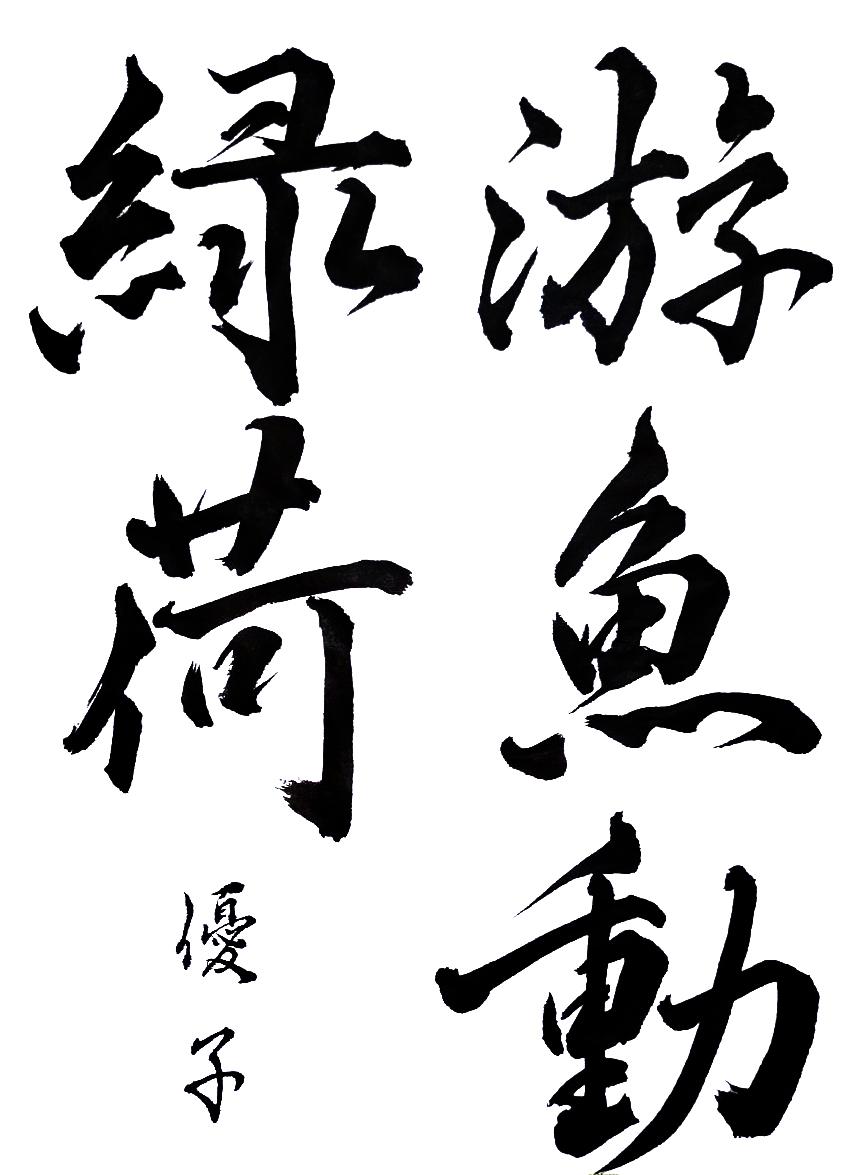 游魚動
緑荷
優子